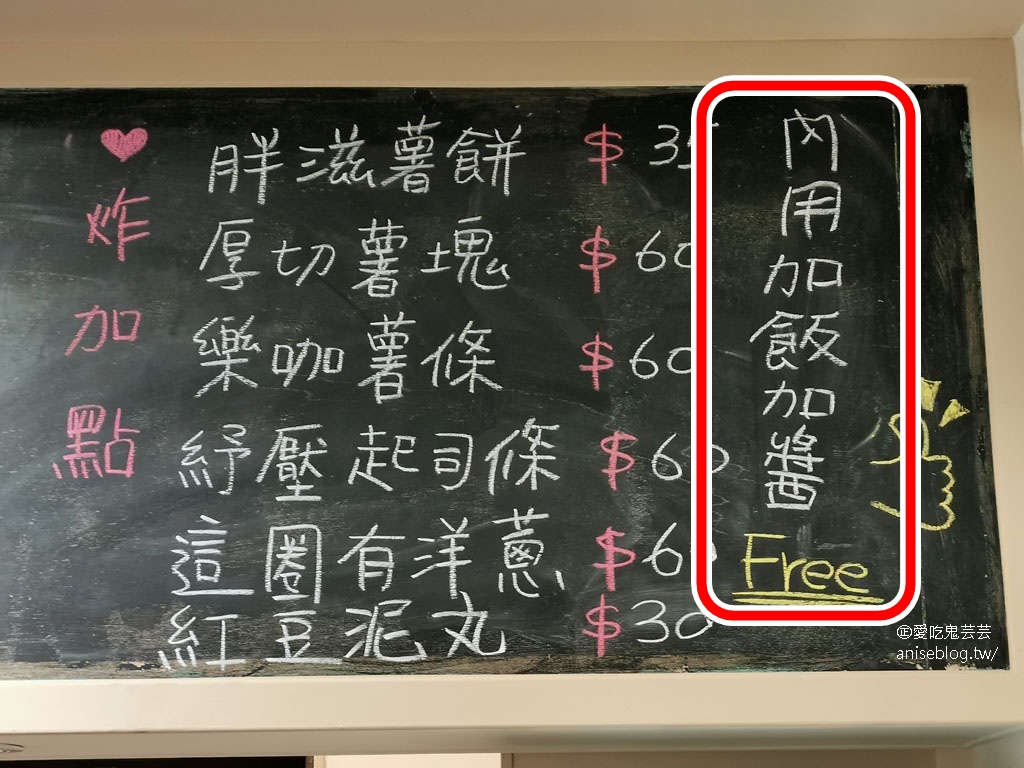 炸加點
胖滋薯餅 $35
厚切薯塊 $60
樂咖薯條 $60
紓壓起司條 $60
這圈有洋蔥 $60
紅豆泥丸 $30
內用加飯加醬
Free
愛吃鬼芸芸
aniseblog.tw/